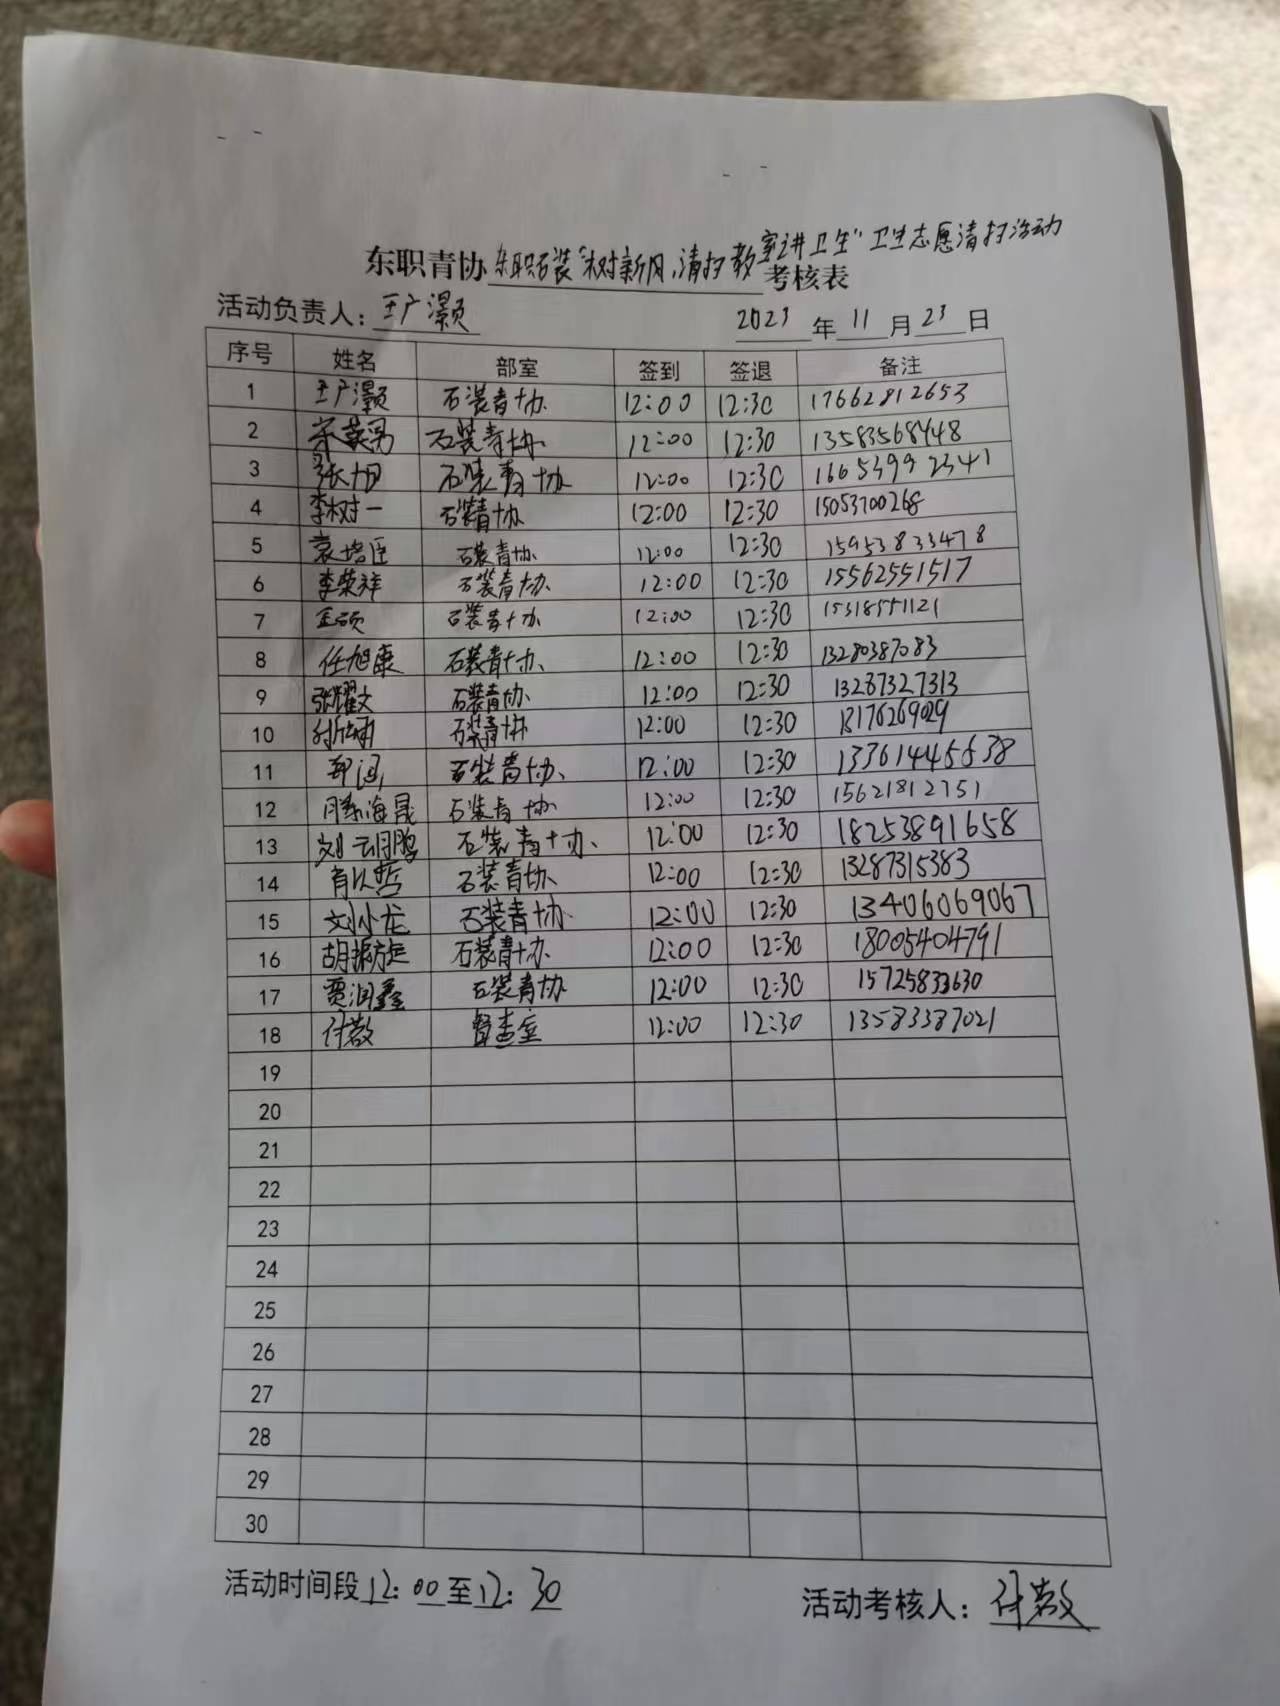 东职青协东职石装"树新风,清扫教室讲卫生"卫生志愿清扫活动考核表
活动负责人：王广灏 2023年11月23日
序号 姓名 部室 签到 签退 备注
1 王广灏 石装青协 12:00 12:30 17662812653
2 宋英男 石装青协 12:00 12:30 13583568448
3 张旭 石装青协 12:00 12:30 16653992341
4 李树一 石装青协 12:00 12:30 15053700268
5 袁培臣 石装青协 12:00 12:30 15953833478
6 李荣祥 石装青协 12:00 12:30 15562551517
7 石装青协 12:00 12:30 15318551121
8 任旭康 石装青协 12:00 12:30 13280387083
9 张耀文 石装青协 12:00 12:30 13287327313
10 石装青协 12:00 12:30
11 石装青协 12:00 12:30 13361445538
12 滕海晟 石装青协 12:00 12:30 15621812751
13 刘云鹏 石装青协 12:00 12:30 18253891658
14 肖以哲 石装青协 12:00 12:30 13287315383
15 刘小龙 石装青协 12:00 12:30 13406069067
16 胡振旋 石装青协 12:00 12:30 18005404791
17 贾润鑫 石装青协 12:00 12:30 15725833630
18 付教 督查室 12:00 12:30 13583387021
19
20
21
22
23
24
25
26
27
28
29
30
活动时间段12:00至12:30 活动考核人：付教